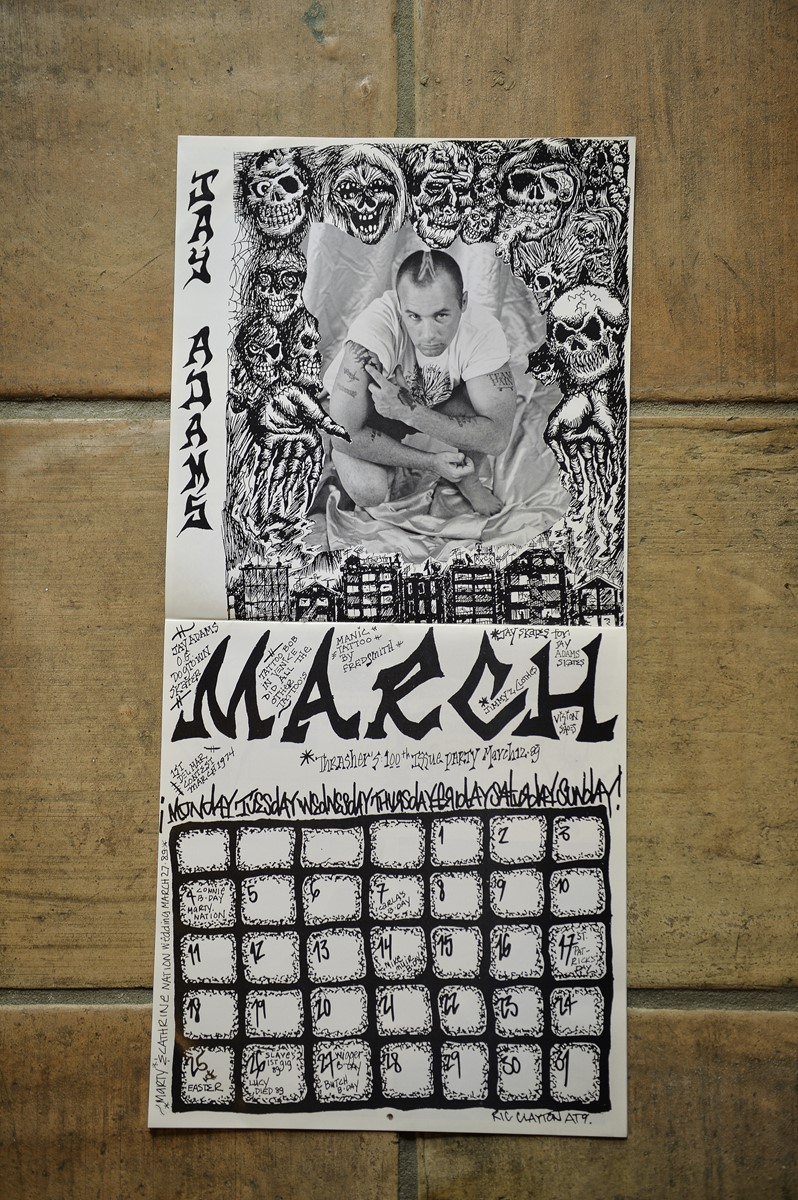 JAY ADAMS
JAY ADAMS
O.G.
DOGTOWN
SKATER
TATTOO BOB
IN VENICE
DID ALL THE
OTHER
TATTOO'S
MANIC
TATTOO
BY
FREDSMITH
*JAY SKATES FOR
JAY
ADAMS
SKATES
*JIMMY'Z CLOTHES
VISION
MARCH
1ST
DEL MAR
CONTEST
MARCH 1974
*THRASHER'S 100th ISSUE PARTY MARCH 12·89
¡MONDAY TUESDAY WEDNESDAY THURSDAY FRIDAY SATURDAY SUNDAY!
1 2 3
4 CONNIE
B-DAY
MARTY
NATION
5 6 7
B-DAY
8 9 10
11 12 13 14 15 16 17 ST.
PAT-
RICKS
18 19 20 21 22 23 24
25
&
EASTER
26 SLAVES
1ST GIG
89
LUCY
DIED 89
27
B-DAY
BUTCH
B-DAY
28 29 30 31
*MARTY & CATHRINE NATION WEDDING MARCH 27·89*
RIC CLAYTON ART 9.